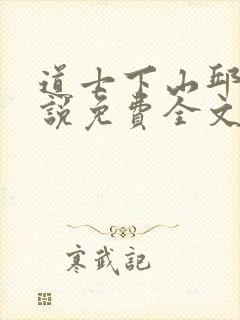 道士下山邱
說免費全文
寒武記